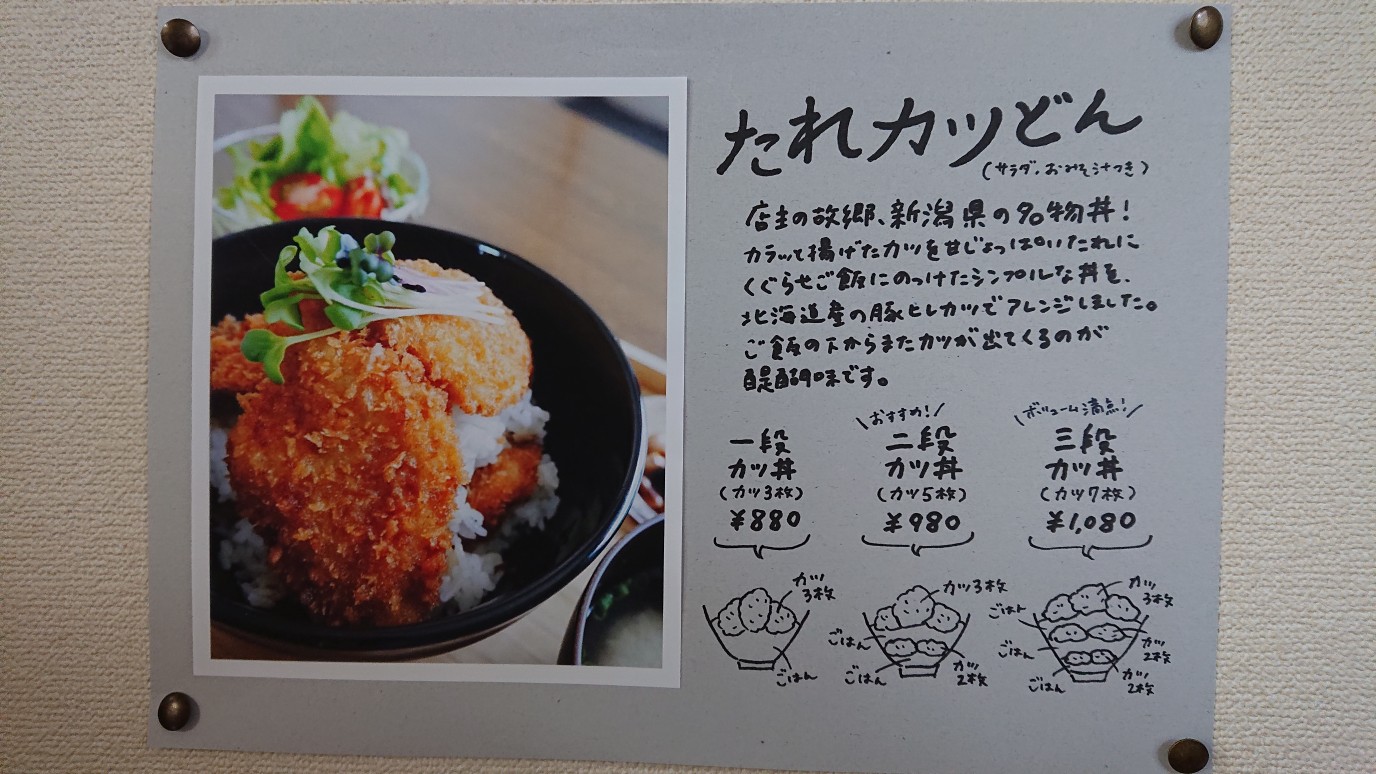 たれカツどん
(サラダ・おみそ汁つき)
店主の故郷、新潟県の名物丼!
カラッと揚げたカツを甘じょっぱいたれに
くぐらせご飯にのっけたシンプルな丼を、
北海道産の豚ヒレカツでアレンジしました。
ご飯の下からまたカツが出てくるのが
醍醐味です。
一段
カツ丼
(カツ3枚)
¥880
カツ
3枚
ごはん
\おすすめ!/
二段
カツ丼
(カツ5枚)
¥980
カツ3枚
ごはん
ごはん
カツ
2枚
\ボリューム満点!/
三段
カツ丼
(カツ7枚)
¥1,080
ごはん
カツ
3枚
ごはん
カツ
2枚
ごはん
カツ
2枚